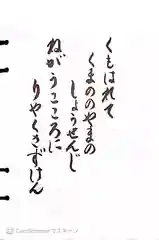 くもはれて
くまののやまの
しょうせんじ
ねがうこころに
りやくきずけん
CamScanner でスキャン